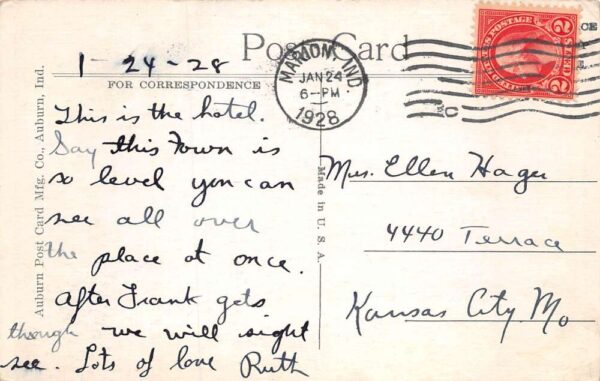 1-24-28
Post Card
FOR CORRESPONDENCE
MARION, IND.
JAN 24
6-PM
1928
POSTAGE
2 2
This is the hotel.
Say this Town is
so level you can
see all over
the place at once.
After Frank gets
through we will sight
see. Lots of love Ruth
Mrs. Ellen Hager
4440 Terrace
Kansas City Mo
Auburn Post Card Mfg. Co., Auburn, Ind.
Made in U. S. A.